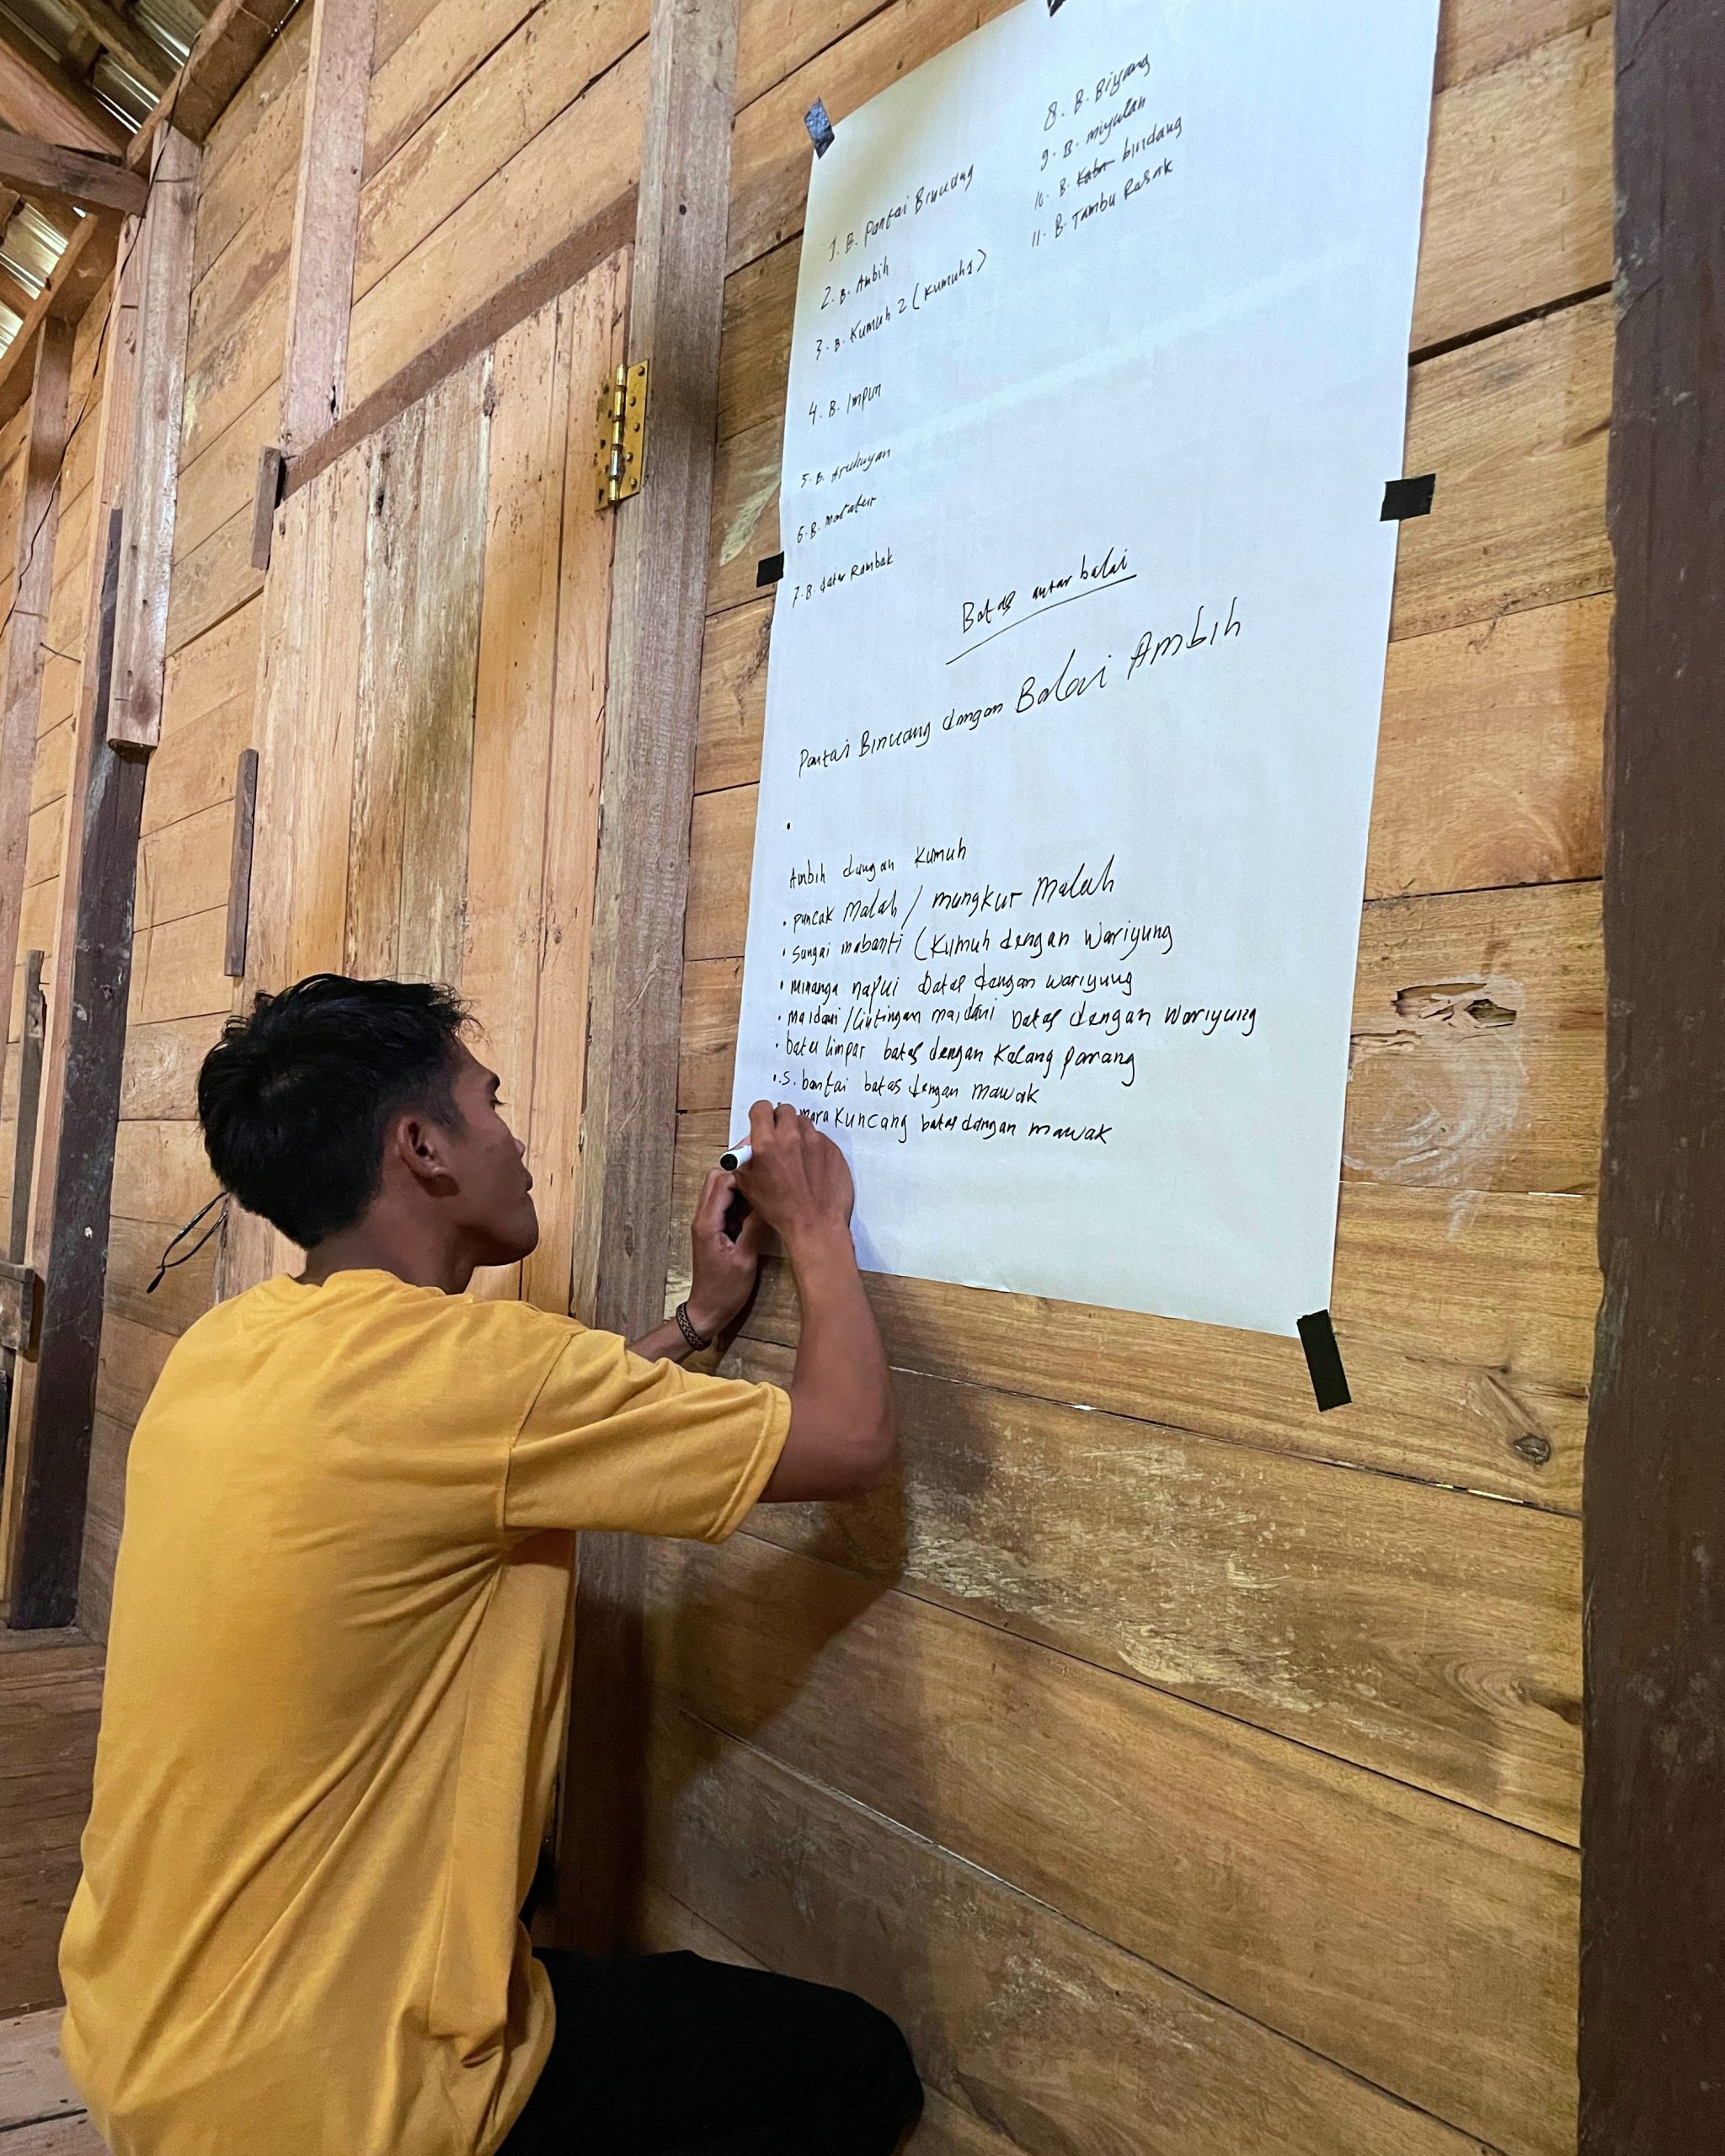 1. B. Pantai Binuang
2. B. Ambih
3. B. Kumuh 2 (Kumuh1)
4. B. Impun
5. B.
6. B.
7. B. datar Rambak
8. B. Biyuang
9. B. miyulan
10. B. bindang
11. B. Tambu Rasak
Batas antar balai
Pantai Binuang dengan Balai Ambih
Ambih dengan Kumuh
• puncak Malah / mungkur Malah
• Sungai mabanti (Kumuh dengan Wariyung
• Minanga napui batas dengan wariyung
• maidani / maidani batas dengan Wariyung
• batu limpar batas dengan Kalang parang
• S. bantai batas dengan mawak
Kuncang batas dengan mawak